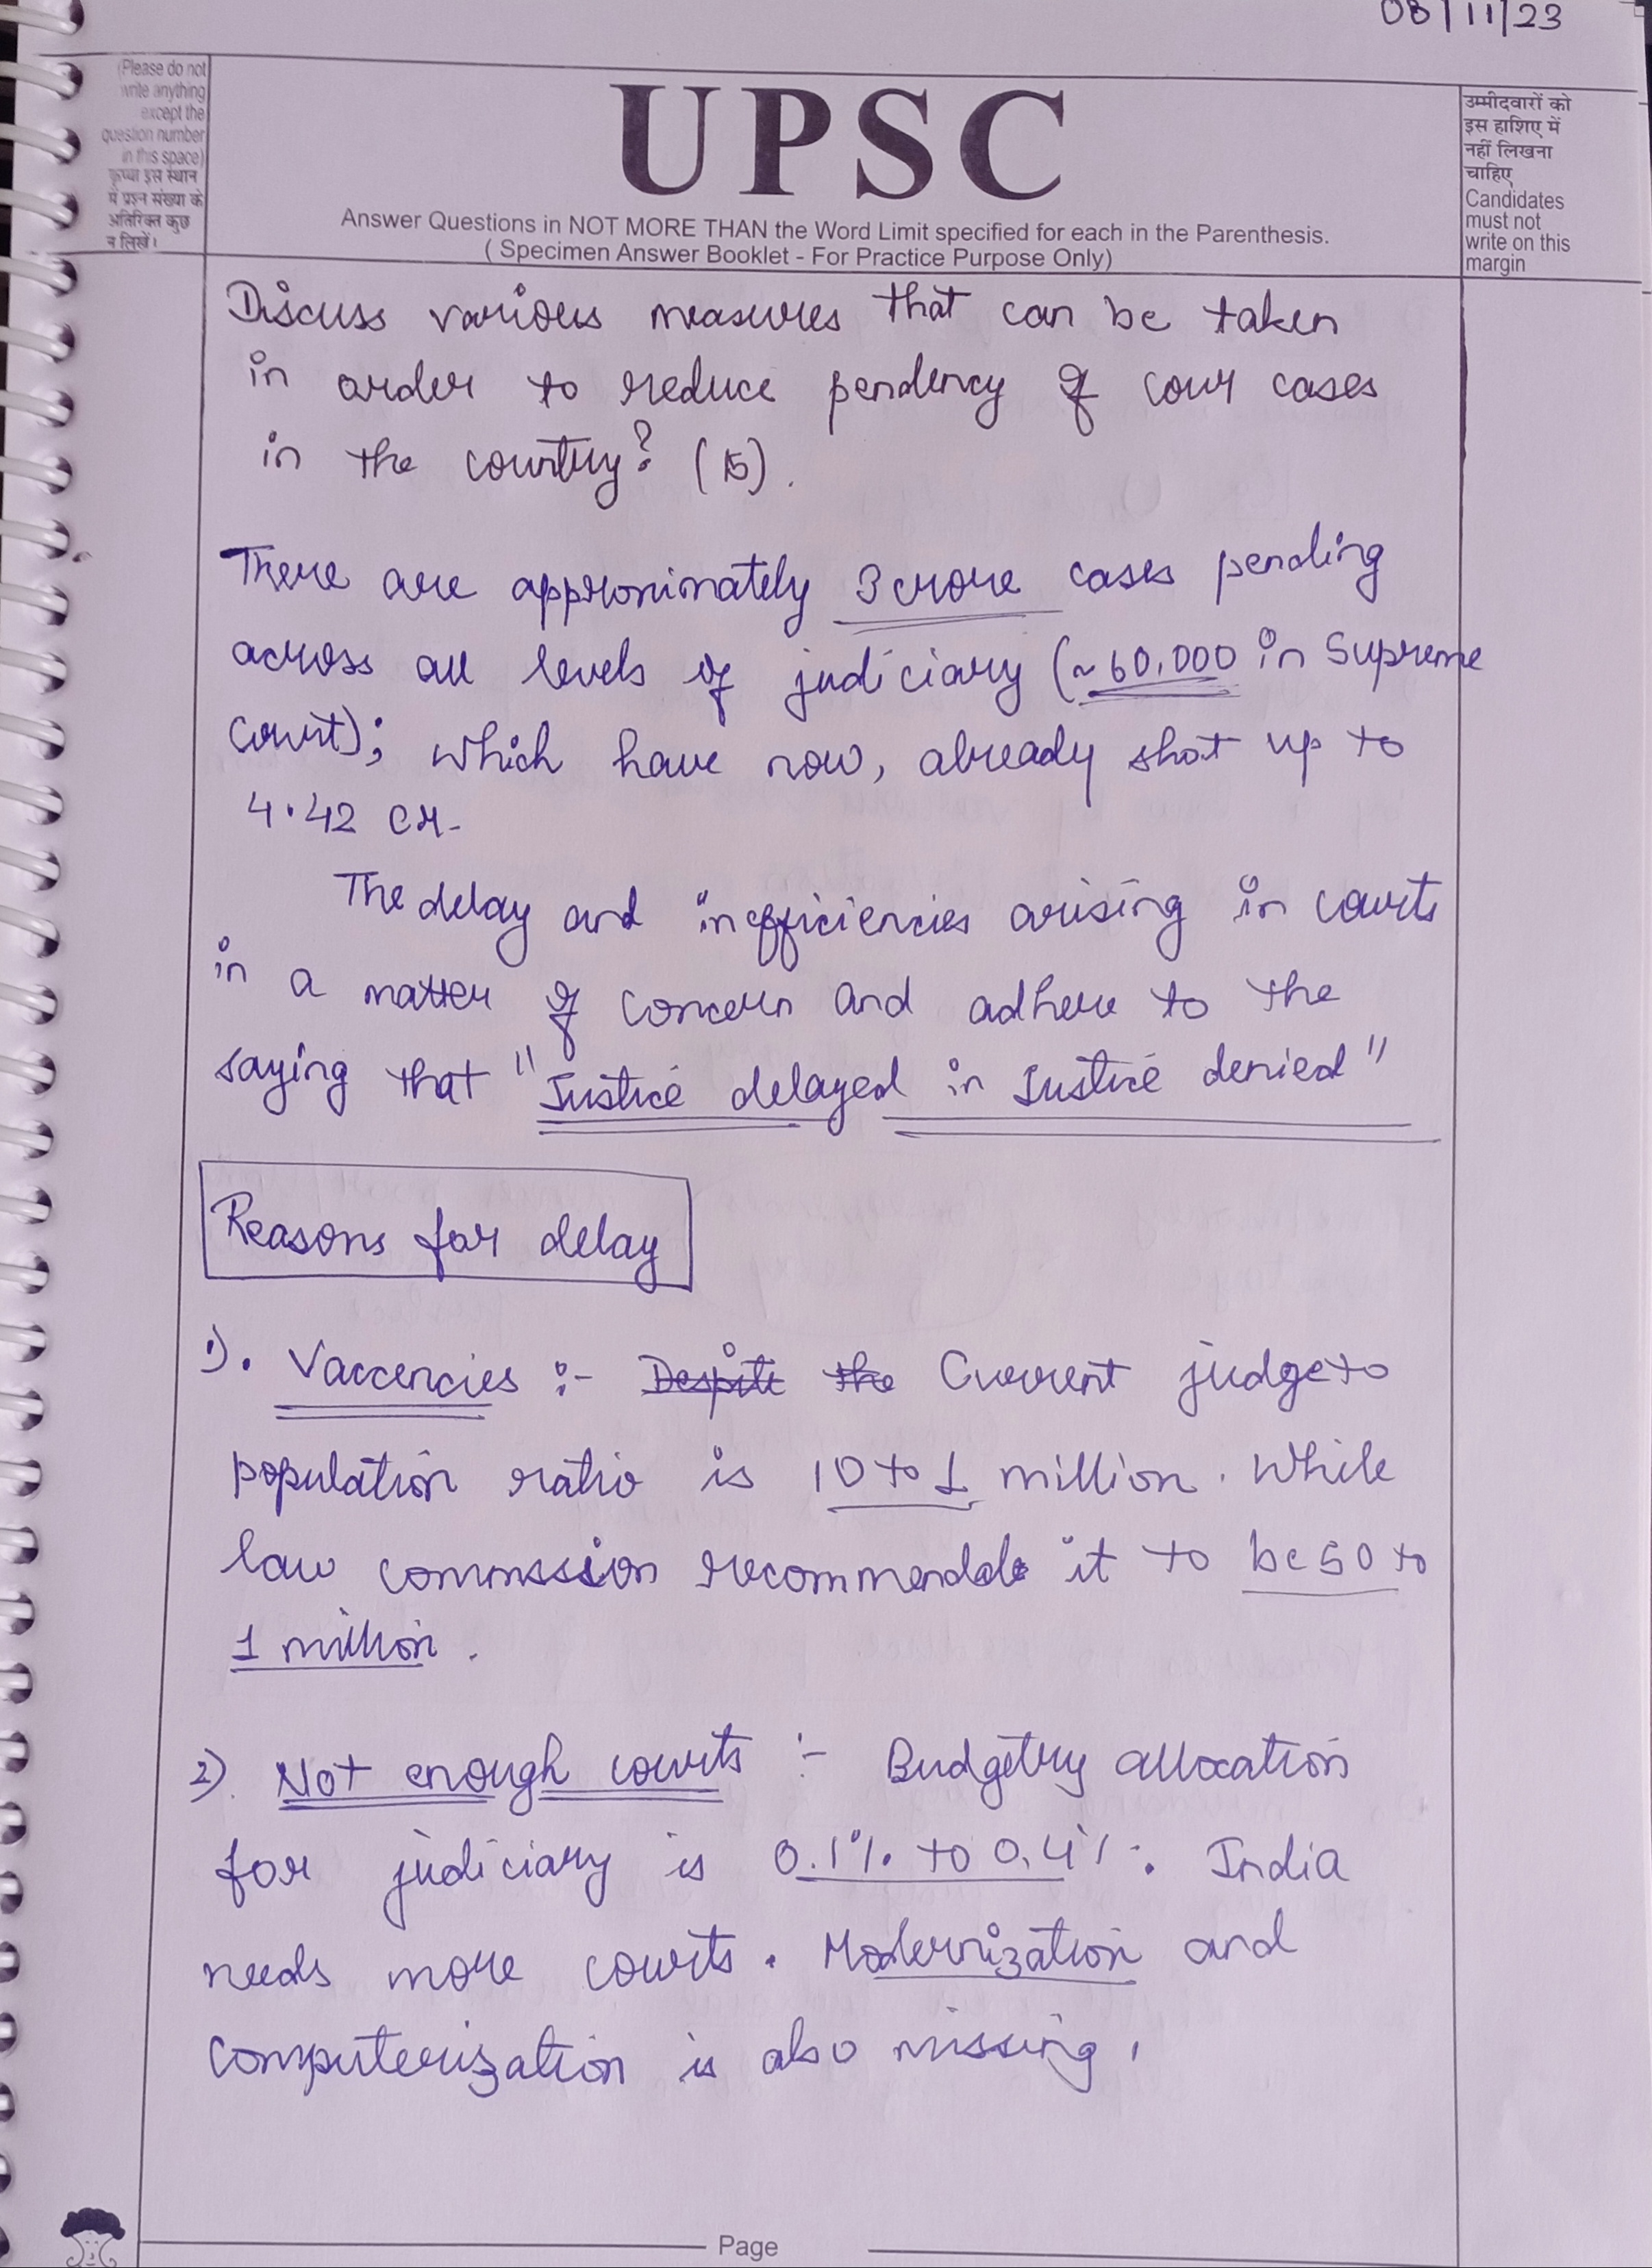 08/11/23
(Please do not
write anything
except the
question number
in this space)
कृप्या इस स्थान
में प्रश्न संख्या के
अतिरिक्त कुछ
न लिखें।
UPSC
Answer Questions in NOT MORE THAN the Word Limit specified for each in the Parenthesis.
( Specimen Answer Booklet - For Practice Purpose Only)
उम्मीदवारों को
इस हाशिए में
नहीं लिखना
चाहिए
Candidates
must not
write on this
margin
Discuss various measures that can be taken
in order to reduce pendency of cour cases
in the country? (15).
There are approximately 3 crore cases pending
across all levels of judiciary (~60,000 in Supreme
Court); which have now, already shot up to
4.42 cr.
The delay and inefficiencies arising in courts
in a matter of concern and adhere to the
saying that "Justice delayed in Justice denied"
Reasons for delay
1). Vaccencies :- Despite the Current judge to
population ratio is 10 to 1 million. While
law commssion recommended it to be 50 to
1 million.
2) Not enough courts :- Budgetry allocation
for judiciary is 0.1% to 0.4%. India
needs more courts. Modernization and
computerization is also missing.
Page